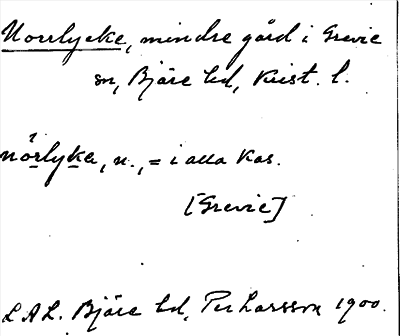 Norrlycke, mindre gård i Grevie
sn, Bjäre hd, Krist. l.
nǒrlyka, n., = i alla kas.
[Grevie]
L.A.L. Bjäre hd, Per Larsson 1900.